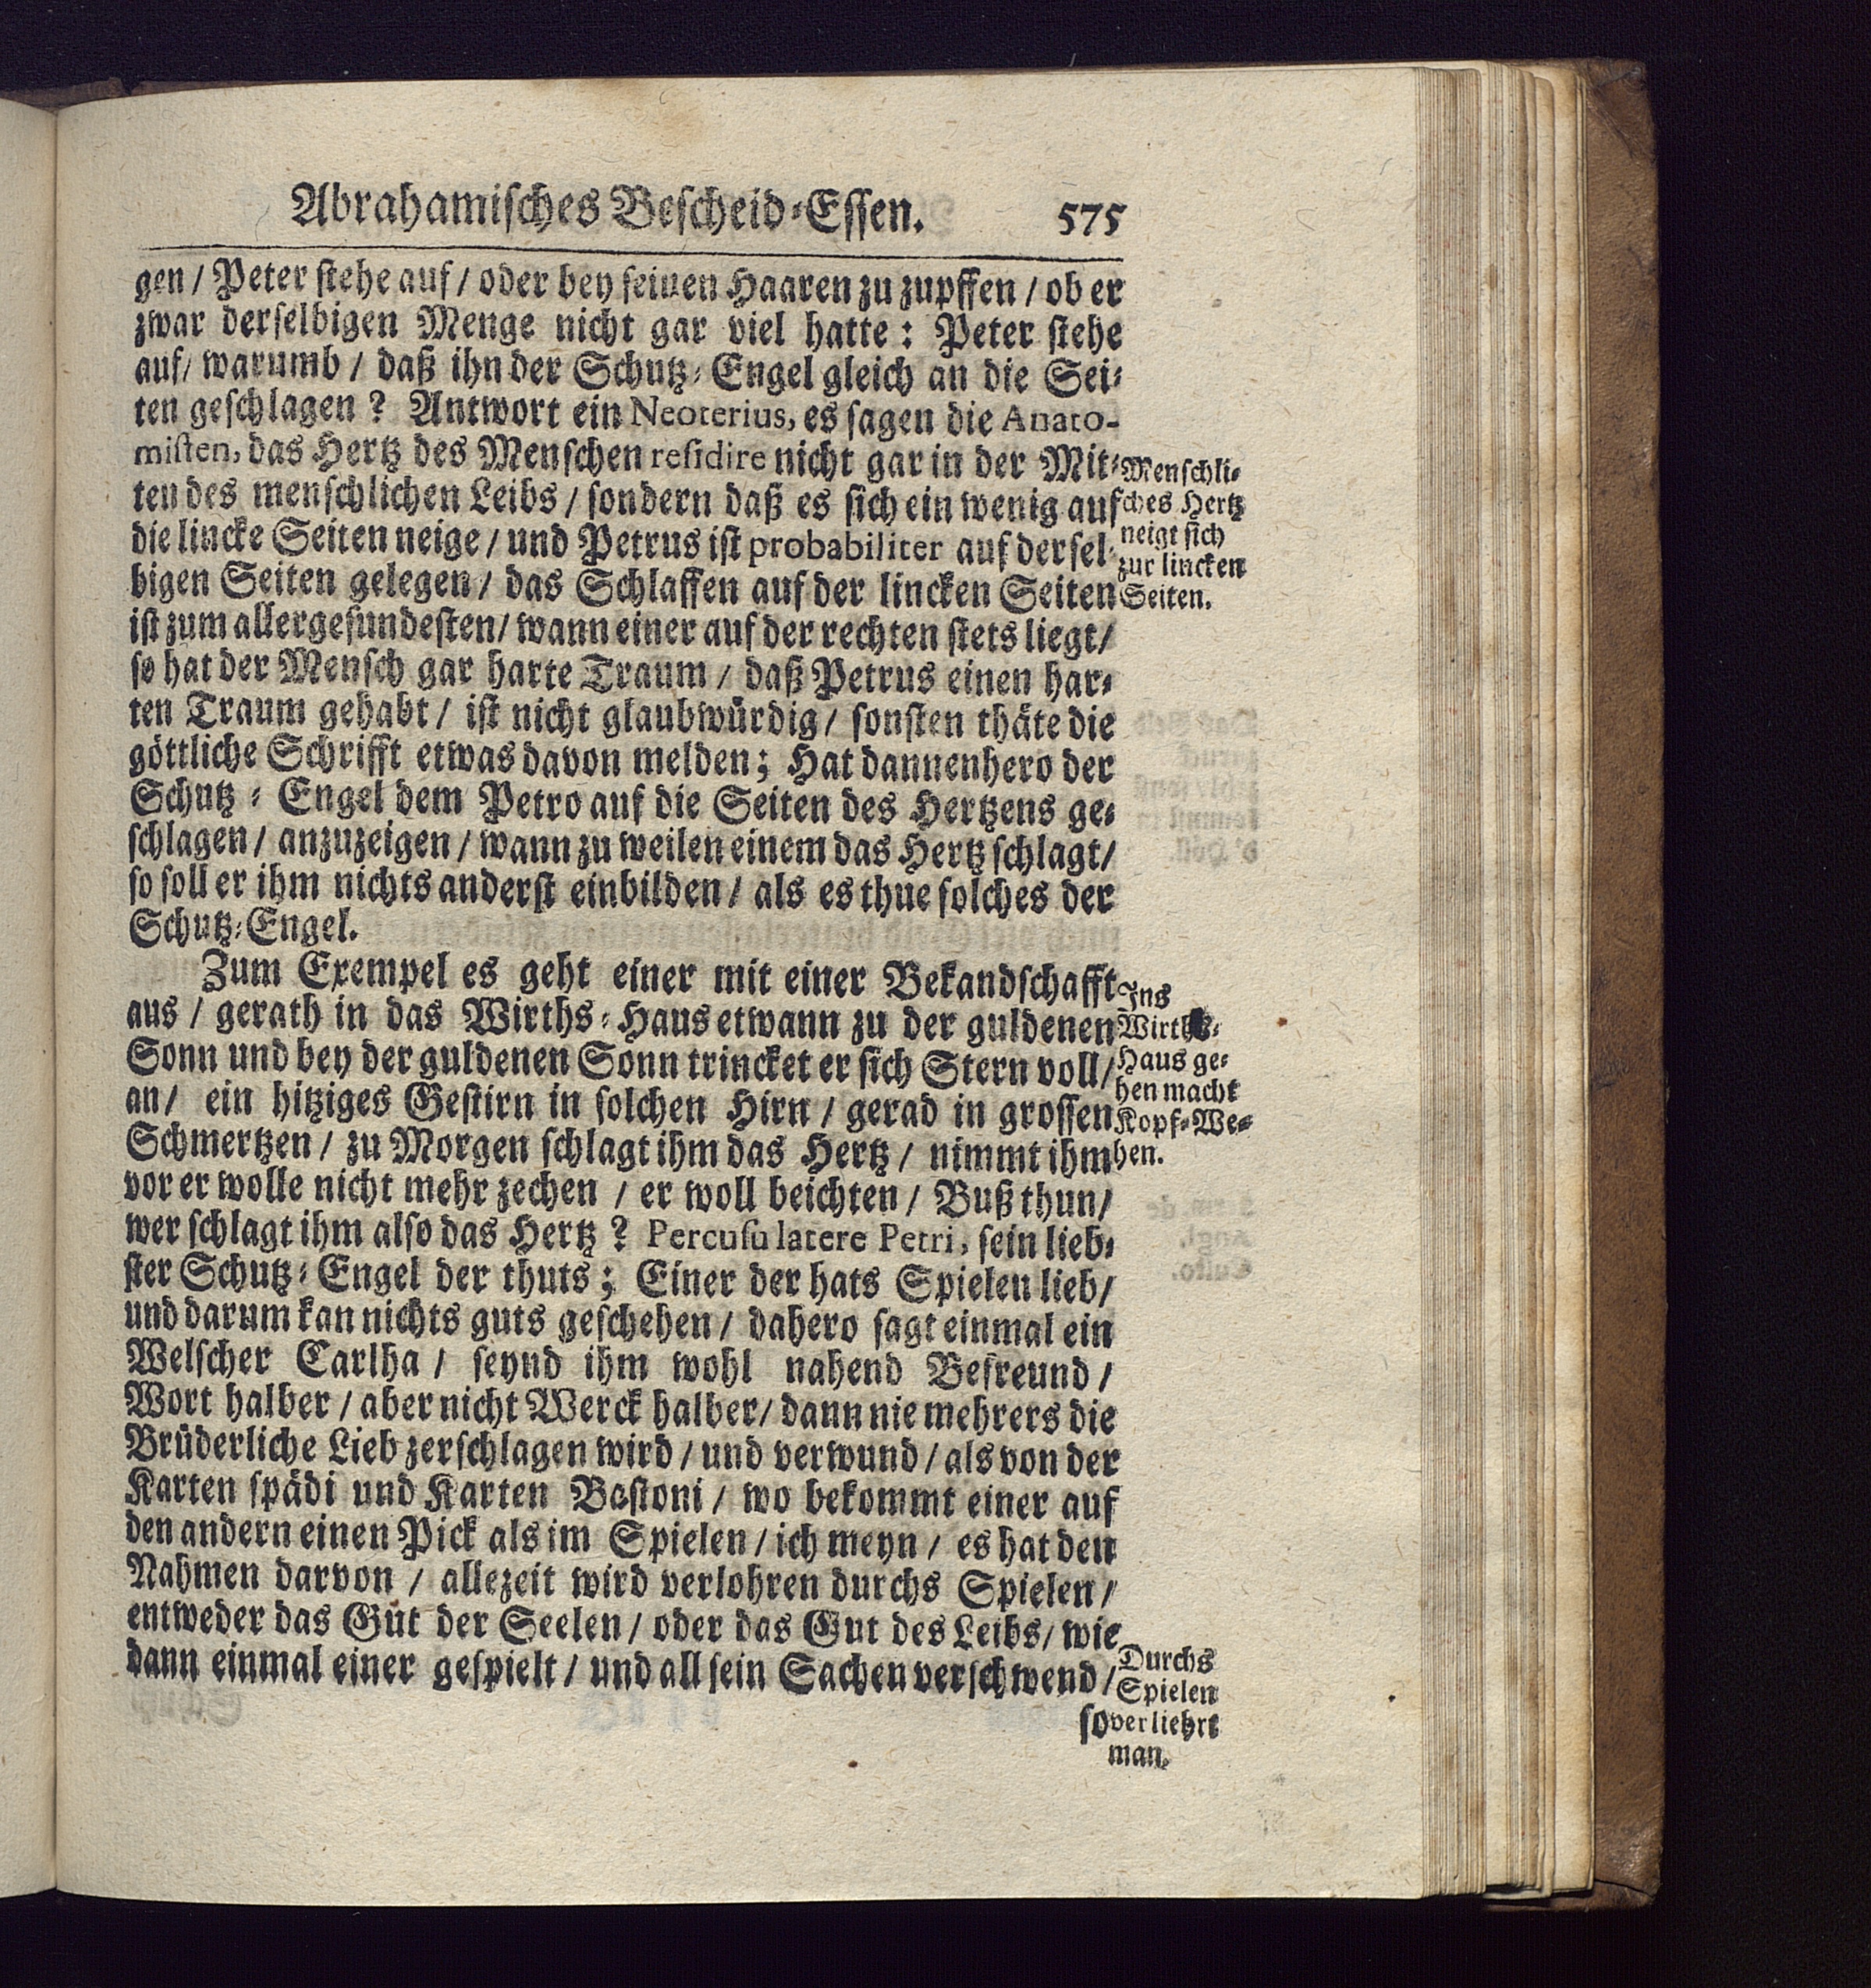 Abrahamisches Bescheid-Essen. 575
gen / Peter stehe auf / oder bey seinen Haaren zu zupffen / ob er
zwar derselbigen Menge nicht gar viel hatte: Peter stehe
auf / warumb / daß ihn der Schutz-Engel gleich an die Sei-
ten geschlagen? Antwort ein Neoterius, es sagen die Anato-
misten, das Hertz des Menschen residire nicht gar in der Mit-
ten des menschlichen Leibs / sondern daß es sich ein wenig auf
die lincke Seiten neige / und Petrus ist probabiliter auf dersel-
bigen Seiten gelegen / das Schlaffen auf der lincken Seiten
ist zum allergesundesten / wann einer auf der rechten stets liegt /
so hat der Mensch gar harte Traum / daß Petrus einen har-
ten Traum gehabt / ist nicht glaubwürdig / sonsten thäte die
göttliche Schrifft etwas davon melden; Hat dannenhero der
Schutz-Engel dem Petro auf die Seiten des Hertzens ge-
schlagen / anzuzeigen / wann zu weilen einem das Hertz schlagt /
so soll er ihm nichts anderst einbilden / als es thue solches der
Schutz-Engel.
Menschli-
ches Hertz
neigt sich
zur lincken
Seiten.
Zum Exempel es geht einer mit einer Bekandschafft
aus / gerath in das Wirths-Haus etwann zu der guldenen
Sonn und bey der guldenen Sonn trincket er sich Stern voll /
an / ein hitziges Gestirn in solchen Hirn / gerad in grossen
Schmertzen / zu Morgen schlagt ihm das Hertz / nimmt ihm
vor er wolle nicht mehr zechen / er woll beichten / Buß thun /
wer schlagt ihm also das Hertz? Percusu latere Petri, sein lieb-
ster Schutz-Engel der thuts; Einer der hats Spielen lieb /
und darum kan nichts guts geschehen / dahero sagt einmal ein
Welscher Carlha / seynd ihm wohl nahend Befreund /
Wort halber / aber nicht Werck halber / dann nie mehrers die
Brüderliche Lieb zerschlagen wird / und verwund / als von der
Karten spädi und Karten Bastoni / wo bekommt einer auf
den andern einen Pick als im Spielen / ich meyn / es hat den
Nahmen darvon / allezeit wird verlohren durchs Spielen /
entweder das Gut der Seelen / oder das Gut des Leibs / wie
dann einmal einer gespielt / und all sein Sachen verschwend /
so
Ins
Wirths-
Haus ge-
hen macht
Kopf-We-
hen.
Durchs
Spielen
verliehrt
man.